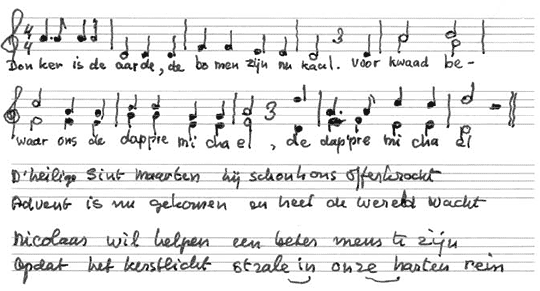 Donker is de aarde, de bomen zijn nu kaal. voor kwaad be-
waar ons de dappre michael, de dappre michael
D'heilige Sint Maarten hij schonk ons Offerkracht
Advent is nu gekomen en heel de wereld wacht
Nicolaas wil helpen een beter mens te zijn
Opdat het kerstlicht strale in onze harten rein